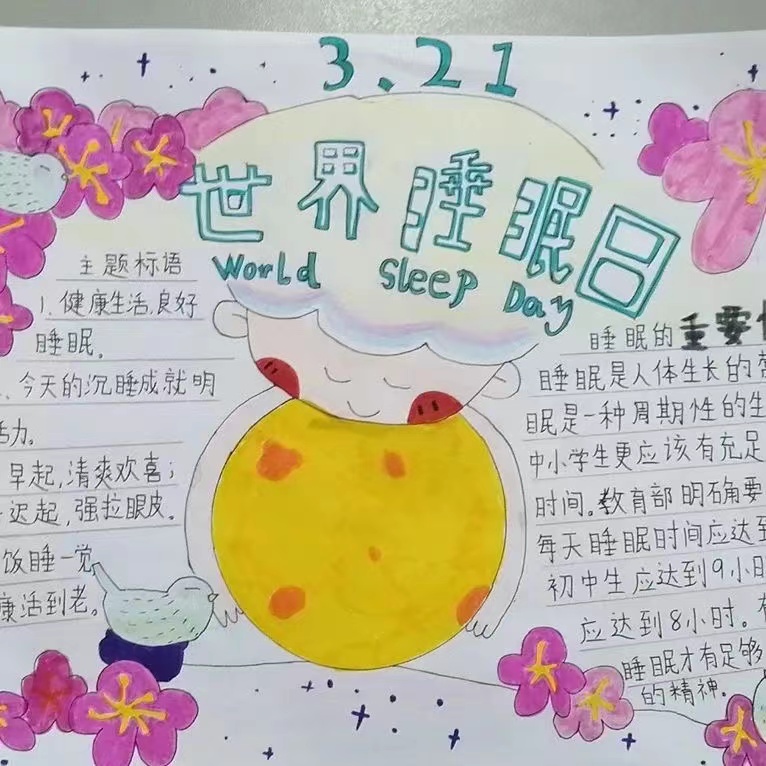 3.21
世界睡眠日
World Sleep Day
主题标语
1.健康生活,良好
睡眠。
今天的沉睡成就明
活力。
早起,清爽欢喜;
迟起,强拉眼皮。
饭睡一觉
康活到老。
睡眠的重要
睡眠是人体生长的
眠是一种周期性的生
中小学生更应该有充足
时间。教育部明确要
每天睡眠时间应达到
初中生应达到9小时
应达到8小时。
睡眠才有足够
的精神。